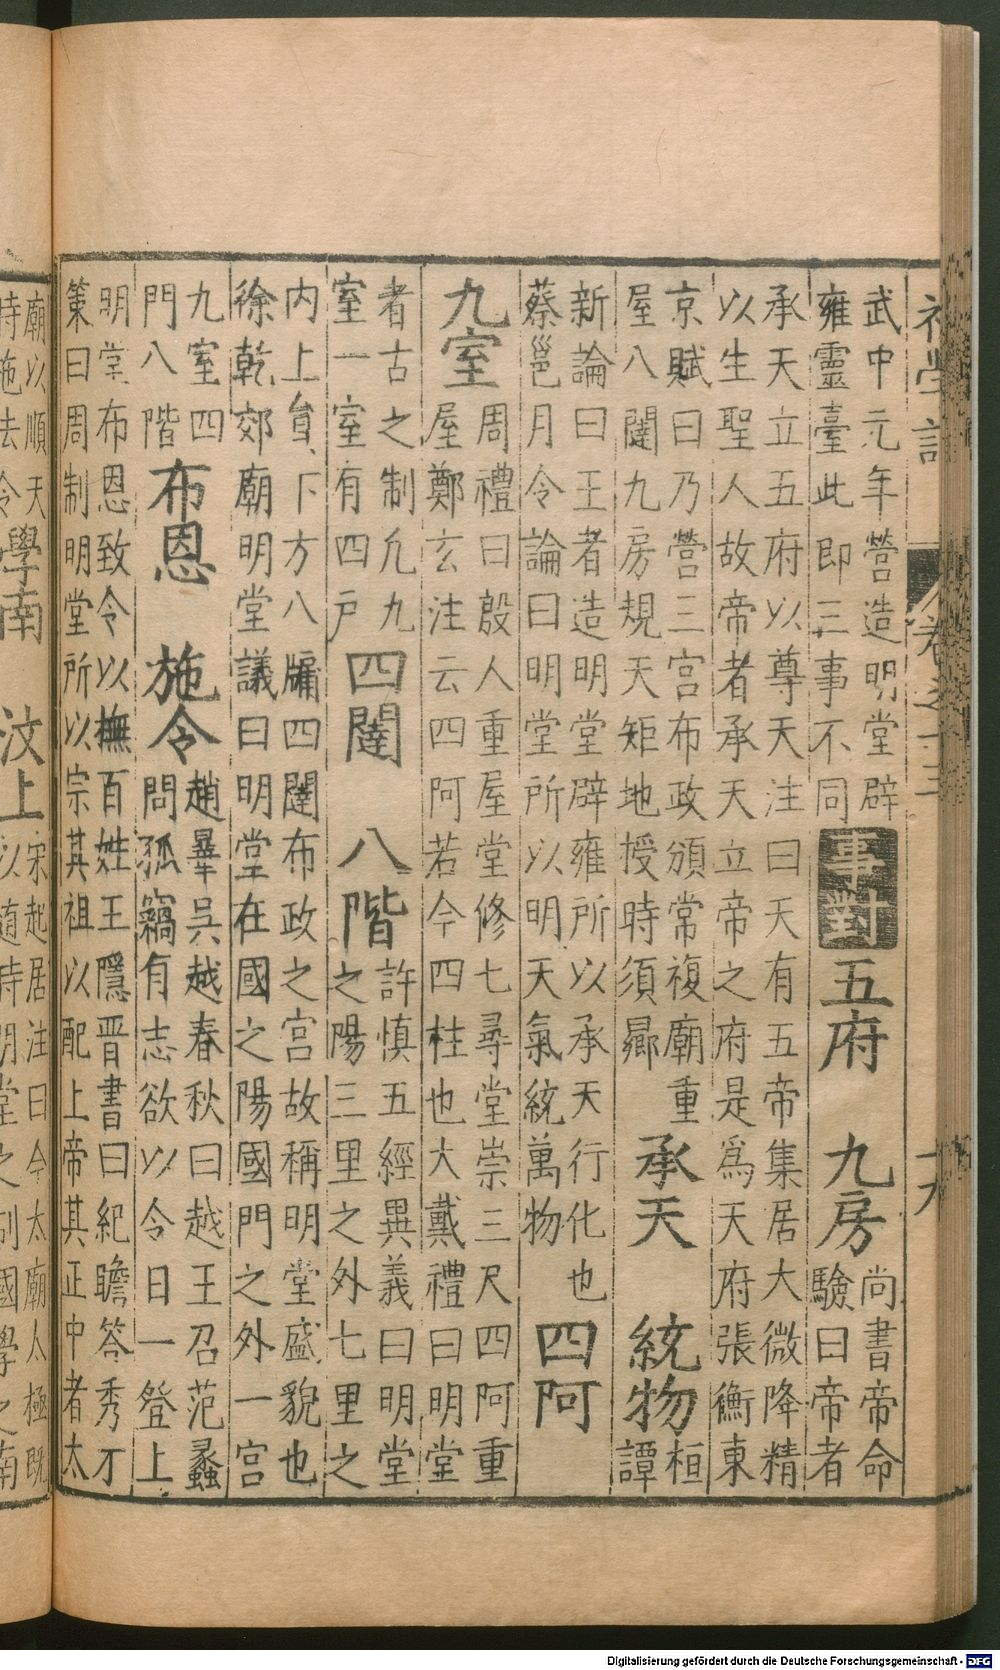 初學記 卷之十三 十九
武中元年營造明堂辟
雍靈臺此即三事不同
事對
五府 九房
尚書帝命
驗曰帝者
承天立五府以尊天注曰天有五帝集居大微降精
以生聖人故帝者承天立帝之府是爲天府張衡東
京賦曰乃營三宮布政頒常複廟重
屋八闥九房規天矩地授時須鄉
承天 統物
桓
譚
新論曰王者造明堂辟雍所以承天行化也
蔡邕月令論曰明堂所以明天氣統萬物
四阿
九室
周禮曰殷人重屋堂修七尋堂崇三尺四阿重
屋鄭玄注云四阿若今四柱也大戴禮曰明堂
者古之制凡九
室一室有四戶
四闥 八階
許慎五經異義曰明堂
之陽三里之外七里之
内上員下方八牖四闥布政之宮故稱明堂盛貌也
徐乾郊廟明堂議曰明堂在國之陽國門之外一宮
九室四
門八階
布恩 施令
趙曅吳越春秋曰越王召范蠡
問孤竊有志欲以今日一登上
明堂布恩致令以撫百姓王隱晋書曰紀瞻答秀才
策曰周制明堂所以宗其祖以配上帝其正中者太
廟以順天
時施法令
學南 汶上
宋起居注曰今太廟太極既
以隨時明堂之制國學之南
Digitalisierung gefördert durch die Deutsche Forschungsgemeinschaft - DFG